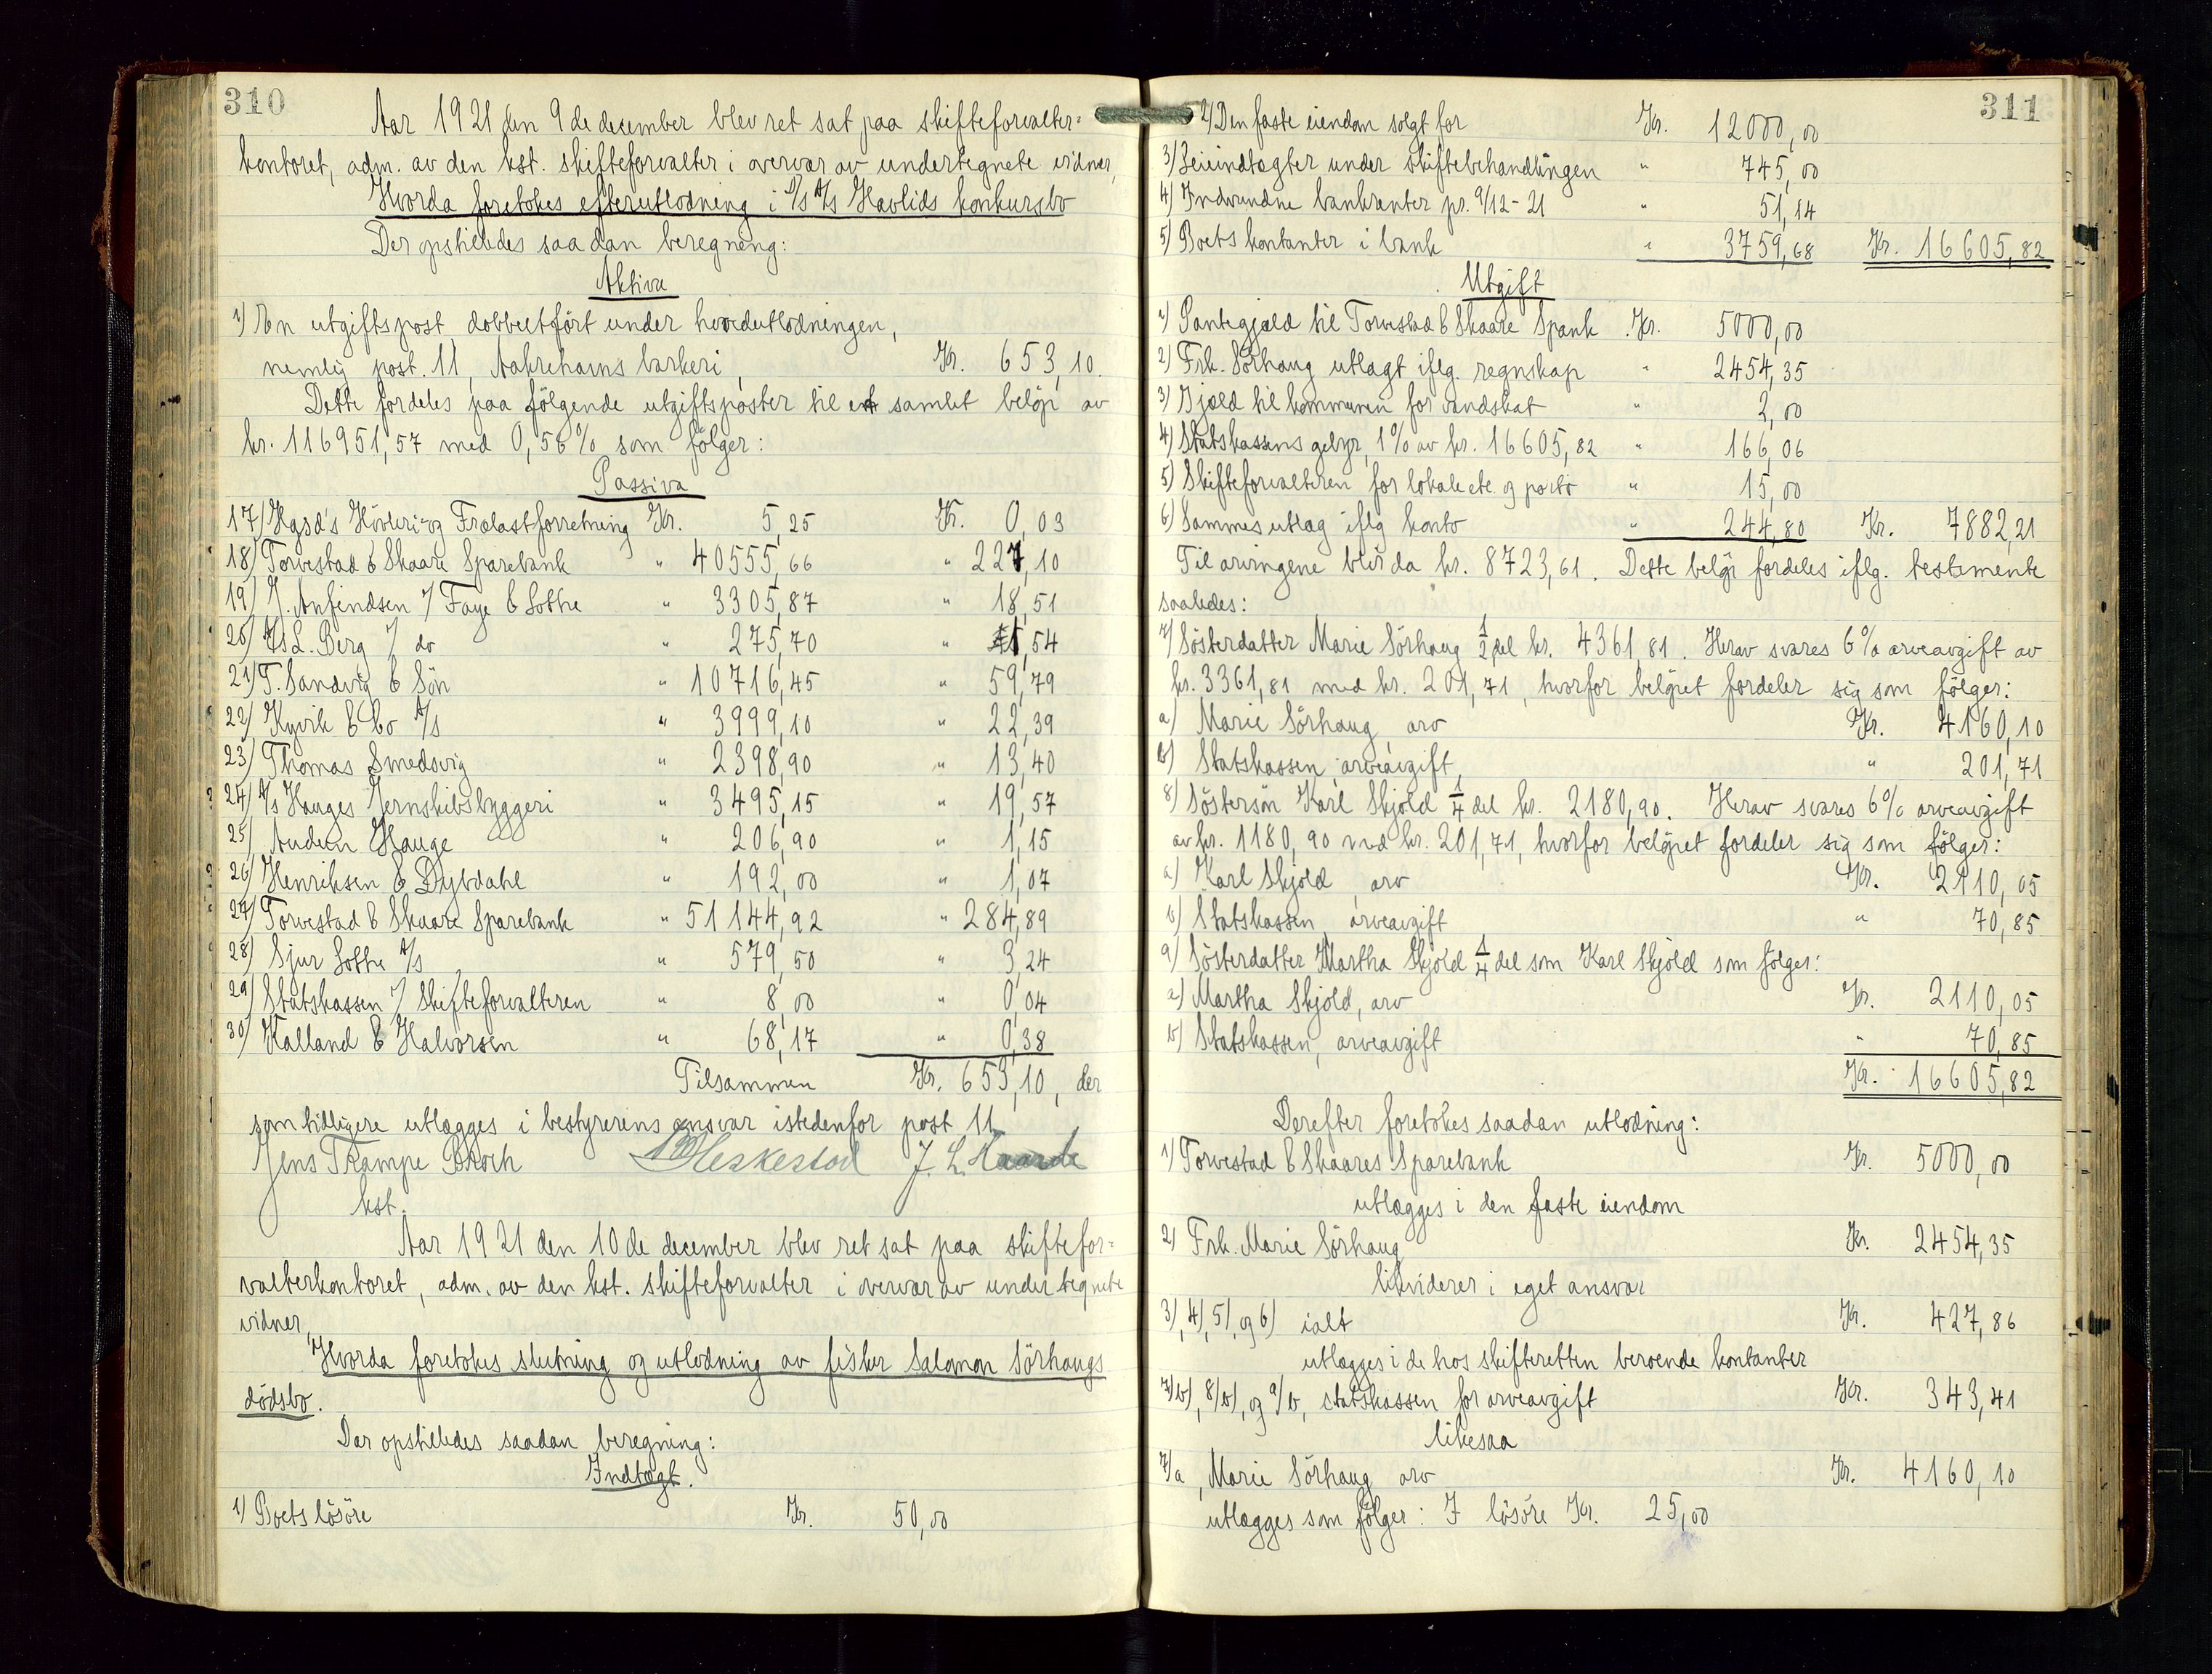 310
Aar 1921 den 9de december blev ret sat paa skifteforvalter=
kontoret, adm. av den kst. skifteforvalter i overvær av undertegnete vidner,
Hvorda foretokes efterutlodning i D/S A/S Havlids konkursbo
Der opstilledes saadan beregning:
Aktiva
1) En utgiftspost dobbeltført under hovedutlodningen,
nemlig post. 11, Aakrehavns barkeri, Kr. 653,10.
Dette fordeles paa følgende utgiftsposter til et samlet beløp av
kr. 116951,57 med 0,56% som følger:
Passiva
17) Hgsd's Høvleri og Trælastforretning Kr. 5,25 Kr. 0,03
18) Torvestad & Skaare Sparebank " 40555,66 " 227,10
19) J. Anfindsen / Faye & Lothe " 3305,87 " 18,51
20) A/S L. Berg / do " 275,70 " 1,54
21) T. Sandvig & Søn " 10716,45 " 59,79
22) Kyvik & Co A/S " 3999,10 " 22,39
23) Thomas Smedsvig " 2398,90 " 13,40
24) A/S Hauges Jernskibsbyggeri " 3495,15 " 19,57
25) Audun Hauge " 206,90 " 1,15
26) Henriksen & Dybdahl " 192,00 " 1,07
27) Torvestad & Skaare Sparebank " 51144,92 " 284,89
28) Sjur Lothe A/S " 579,50 " 3,24
29) Statskassen / Skifteforvalteren " 8,00 " 0,04
30) Kalland & Halvorsen " 68,17 " 0,38
Tilsammen Kr. 653,10, der
som tidligere utlægges i bestyrerens ansvar istedenfor post 11.
Jens Trampe Broch Heskestad J. L. Haarde
kst.
Aar 1921 den 10de december blev ret sat paa skiftefor=
valterkontoret, adm. av den kst. skifteforvalter i overvær av undertegnete
vidner,
Hvorda foretokes slutning og utlodning av fisker Salomon Sørhaugs
dødsbo.
Der opstilledes saadan beregning:
Indtægt.
1) Boets løsøre Kr. 50,00
311
2) Den faste eiendom solgt for Kr. 12000,00
3) Leieindtægter under skiftebehandlingen " 745,00
4) Indvundne bankrenter pr. 9/12-21 " 51,14
5) Boets kontanter i bank " 3759,68 Kr. 16605,82
Utgift
1) Pantegjæld til Torvestad & Skaare Spbank Kr. 5000,00
2) Frk. Sørhaug utlagt iflg. regnskap " 2454,35
3) Gjæld til kommunen for vandskat " 2,00
4) Statskassens gebyr, 1% av kr. 16605,82 " 166,06
5) Skifteforvalteren for lokale etc. og porto " 15,00
6) Sammes utlæg iflg konto " 244,80 Kr. 7882,21
Til arvingene blir da kr. 8723,61. Dette beløp fordeles iflg. testamente
saaledes:
7) Søsterdatter Marie Sørhaug 1/2 del kr. 4361,81. Herav svares 6% arveavgift av
kr. 3361,81 med kr. 201,71, hvorfor beløpet fordeler sig som følger:
a) Marie Sørhaug, arv Kr. 4160,10
b) Statskassen, arveavgift, " 201,71
8) Søstersøn Karl Skjold 1/4 del kr. 2180,90. Herav svares 6% arveavgift
av kr. 1180,90 med kr. 201,71, hvorfor beløpet fordeler sig som følger:
a) Karl Skjold, arv Kr. 2110,05
b) Statskassen, arveavgift " 70,85
9) Søsterdatter Martha Skjold 1/4 del som Karl Skjold som følger:
a) Martha Skjold, arv Kr. 2110,05
b) Statskassen, arveavgift " 70,85
Kr. 16605,82
Derefter foretokes saadan utlodning:
1) Torvestad & Skaares Sparebank Kr. 5000,00
utlægges i den faste eiendom
2) Frk. Marie Sørhaug Kr. 2454,35
likviderer i eget ansvar
3), 4), 5), og 6) ialt Kr. 427,86
utlægges i de hos skifteretten beroende kontanter
7/b), 8/b), og 9/b, statskassen for arveavgift Kr. 343,41
likesaa
7/a, Marie Sørhaug arv Kr. 4160,10
utlægges som følger: I løsøre Kr. 25,00